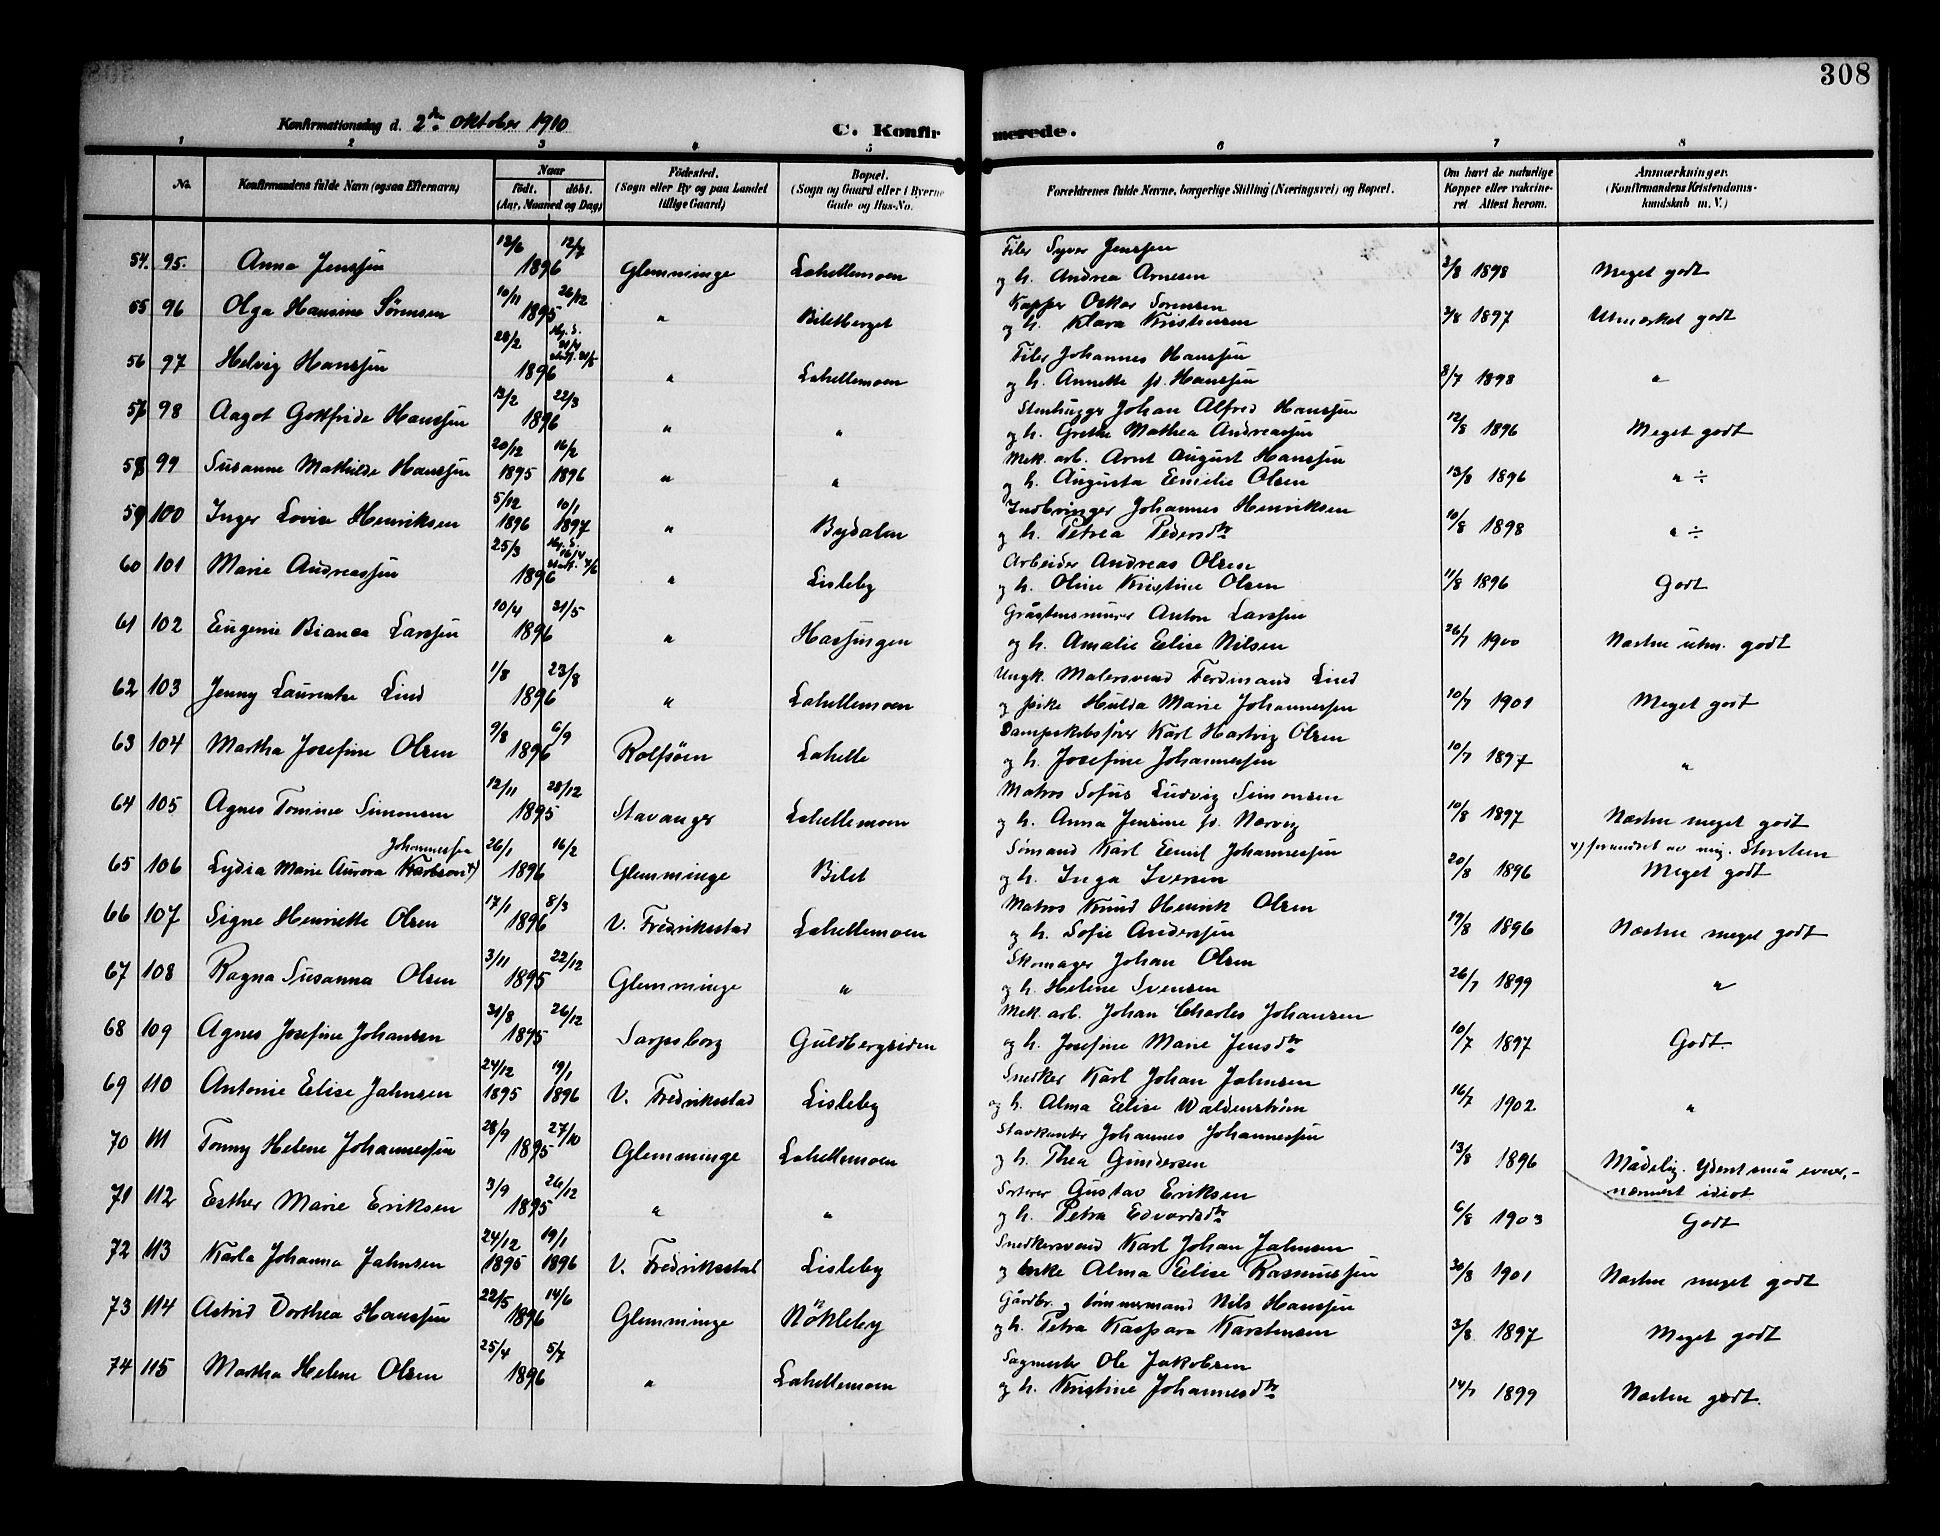 308
Konfirmationsdag d. 2den oktober 1910
C. Konfirmerede.
1 2 3 4 5 6 7 8
No. Konfirmandens fulde Navn (ogsaa Efternavn) Naar födt. döbt. (Aar, Maaned og Dag) Födested. (Sogn eller By og paa Landet tillige Gaard) Bopæl. (Sogn og Gaard eller i Byerne Gade og Hus-No. Forældrenes fulde Navne, borgerlige Stilling (Næringsvei) og Bopæl. Om havt de naturlige Kopper eller vakcineret Attest herom. Anmærkninger. (Konfirmandens Kristendomskundskab m. V.)
54. 95. Anna Jenssen 13/6 12/7 1896 Glemminge Lahellemoen Filer Syver Jenssen
og h. Andrea Arnesen 2/8 1898 Meget godt
55 96 Olga Hansine Sørensen 10/11 26/12 1895 " Biletberget Kapper Oskar Sørensen
og h. Klara Kristensen 3/8 1897 Utmerket godt
56 97 Helvig Hanssen 28/2 1896 " Lahellemoen Filer Johannes Hanssen
og h. Annette f. Hanssen 8/7 1898 "
57 98 Aagot Gottfride Hanssen 13/2 22/3 1896 " " Stenhugger Johan Alfred Hanssen
og h. Grethe Mathea Andreassen 12/8 1896 Meget godt
58 99 Susanne Mathilde Hanssen 20/12 1895 16/2 1896 " " Mek. arb. Arnt August Hanssen
og h. Augusta Emilie Olsen 13/8 1896 " ÷
59 100 Inger Lovise Henriksen 5/12 1896 10/1 1897 " Bydalen Indbringer Johannes Henriksen
og h. Petrea Pedersdtr 10/8 1898 " ÷
60 101 Marie Andreassen 25/3 1896 " Lisleby Arbeider Andreas Olsen
og h. Oline Kristine Olsen 11/8 1896 Godt
61 102 Eugenie Bianca Larssen 10/4 31/5 1896 " Hassingen Gråstensmurer Anton Larssen
og h. Amalie Elise Nilsen 26/7 1900 Næsten utm. godt
62 103 Jenny Laurentze Lind 1/8 23/8 1896 " Lahellemoen Ungk. Malersvend Ferdinand Lind
og pike Hulda Marie Johannessen 10/7 1901 Meget godt
63 104 Martha Josefine Olsen 9/8 6/9 1896 Rolfsøen Lahelle Dampskibsfører Karl Hartvig Olsen
og h. Josefine Johannessen 10/7 1897 "
64 105 Agnes Tomine Simonsen 12/11 28/12 1895 Stavanger Lahellemoen Matros Sofus Ludvig Simonsen
og h. Anna Jensine f. Nærvig 10/8 1897 Næsten meget godt
65 106 Lydia Marie Aurora Karlson x) Johannessen 26/1 16/2 1896 Glemminge Bilet Sømand Karl Emil Johannessen
og h. Inga Iversen 20/8 1896 x) forandret av mig. Stenten
Meget godt
66 107 Signe Henriette Olsen 17/1 8/3 1896 V. Fredriksstad Lahellemoen Matros Knud Henrik Olsen
og h. Sofie Anderssen 19/8 1896 Næsten meget godt
67 108 Ragna Susanna Olsen 3/11 22/12 1895 Glemminge " Skomager Johan Olsen
og h. Helene Svensen 26/7 1899 "
68 109 Agnes Josefine Johansen 31/8 26/12 1895 Sarpsborg Guldbergsiden Mek. arb. Johan Charles Johansen
og h. Josefine Marie Jensdtr 10/7 1897 Godt.
69 110 Antonie Elise Jahnsen 24/12 1895 19/1 1896 V. Fredriksstad Lisleby Snedker Karl Johan Jahnsen
og h. Alma Elise Waldenstrøm 16/7 1902 "
70 111 Tonny Helene Johannessen 28/9 27/10 1895 Glemminge Lahellemoen Stavkanter Johannes Johannessen
og h. Thea Gundersen 13/8 1896 Mådelig. Ydent små evner,-
nærmest idiot
71 112 Esther Marie Eriksen 3/9 26/12 1895 " " Sorterer Gustav Eriksen
og h. Petra Edvardsdtr 6/8 1903 Godt
72 113 Karla Johanna Jahnsen 24/12 1895 19/1 1896 V. Fredriksstad Lisleby Snedkersvend Karl Johan Jahnsen
og enke Alma Elise Rasmussen 30/8 1901 Næsten meget godt
73 114 Astrid Dorthea Hanssen 22/5 14/6 1896 Glemminge Nökleby Gårdbr. og tømmermand Nils Hanssen
og h. Petra Kaspara Karstensen 3/8 1897 Meget godt
74 115 Martha Helene Olsen 25/4 5/7 1896 " Lahellemoen Sagmester Ole Jakobsen
og h. Kristine Johannesdtr 14/7 1899 Næsten godt.